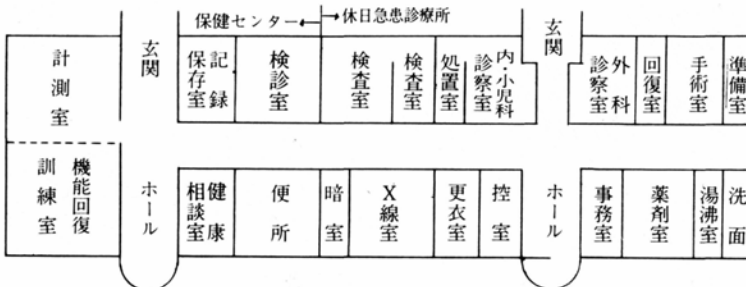 保健センター
休日急患診療所
計測室
玄関
記録
保存室
検診室
検査室
検査室
処置室
内・小児科
診察室
玄関
外科
診察室
回復室
手術室
準備室
機能回復
訓練室
ホール
健康
相談室
便所
暗室
X線室
更衣室
控室
ホール
事務室
薬剤室
湯沸室
洗面